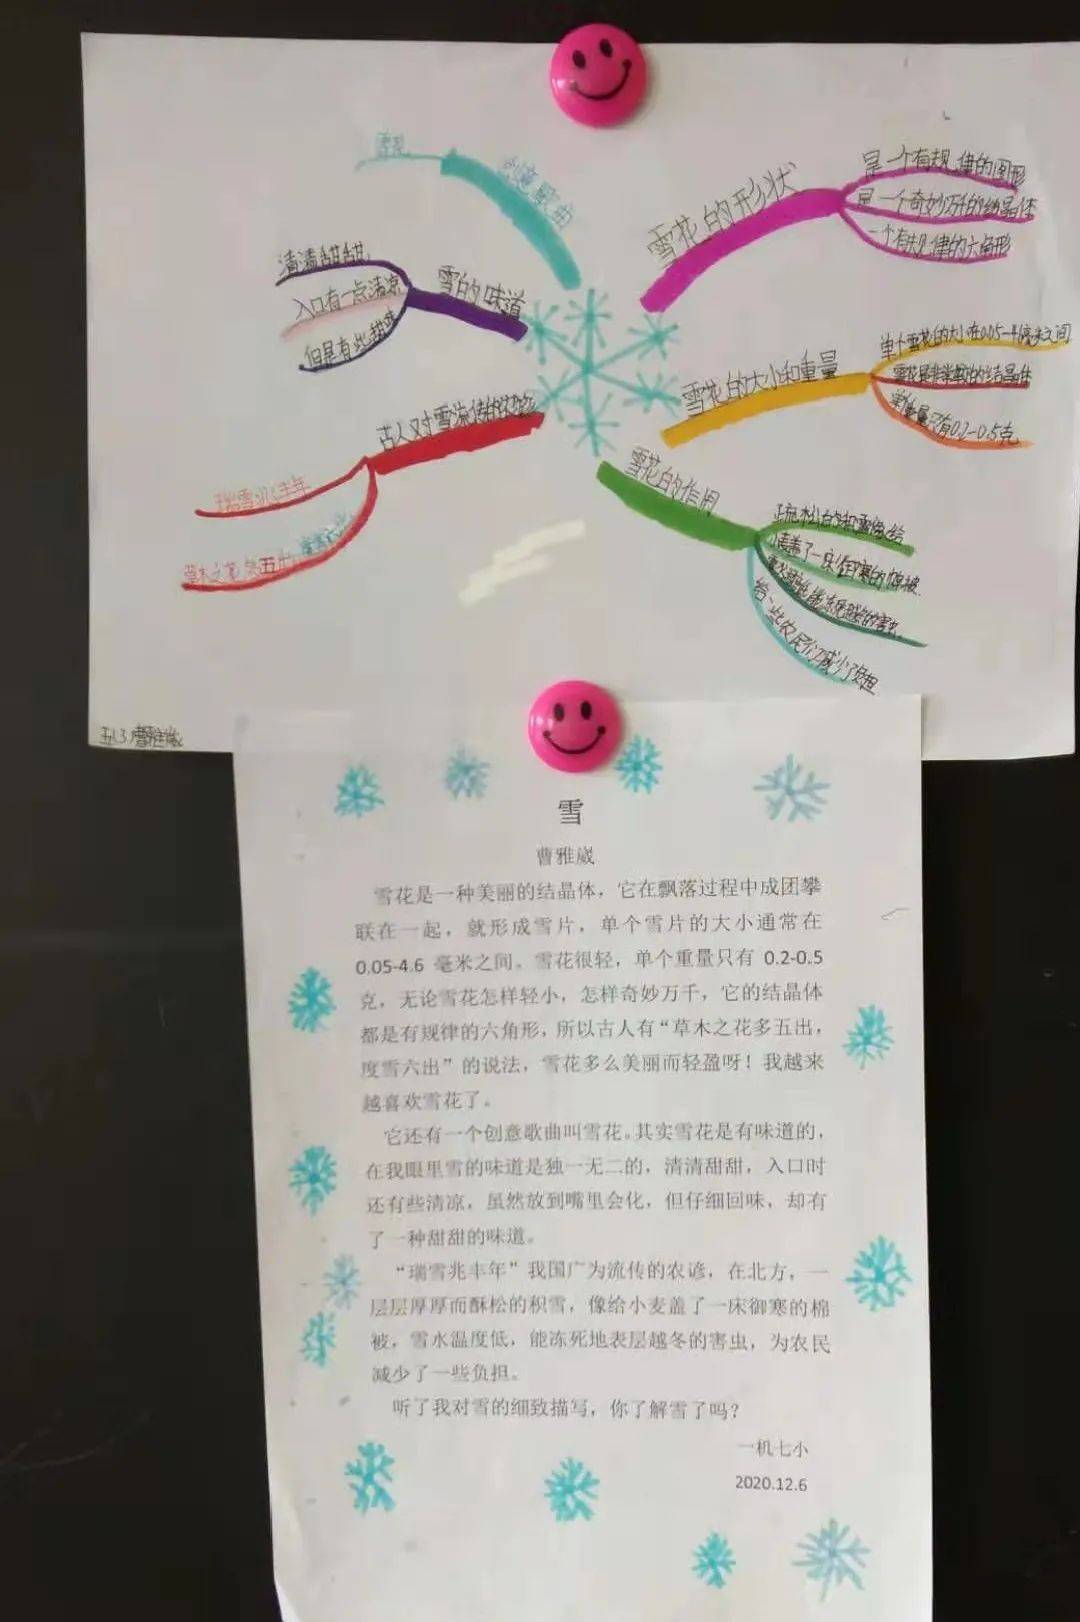 雪花
创意歌曲
清清甜甜
入口有一点清凉
但是有些甜味
雪的味道
瑞雪兆丰年
草木之花多五出，度雪六出
雪花的形状
是一个有规律的图形
是一个奇妙万千的结晶体
一个有规律的六角形
雪花的大小和重量
单个雪花的大小在0.05-4.6毫米之间
单个重量只有0.2-0.5克
雪花的作用
小麦盖了一床御寒的棉被
给一些农民们减少了负担
雪
曹雅崴
雪花是一种美丽的结晶体，它在飘落过程中成团攀
联在一起，就形成雪片，单个雪片的大小通常在
0.05-4.6 毫米之间。雪花很轻，单个重量只有 0.2-0.5
克，无论雪花怎样轻小，怎样奇妙万千，它的结晶体
都是有规律的六角形，所以古人有“草木之花多五出，
度雪六出”的说法，雪花多么美丽而轻盈呀！我越来
越喜欢雪花了。
它还有一个创意歌曲叫雪花。其实雪花是有味道的，
在我眼里雪的味道是独一无二的，清清甜甜，入口时
还有些清凉，虽然放到嘴里会化，但仔细回味，却有
了一种甜甜的味道。
“瑞雪兆丰年”我国广为流传的农谚，在北方，一
层层厚厚而酥松的积雪，像给小麦盖了一床御寒的棉
被，雪水温度低，能冻死地表层越冬的害虫，为农民
减少了一些负担。
听了我对雪的细致描写，你了解雪了吗？
一机七小
2020.12.6